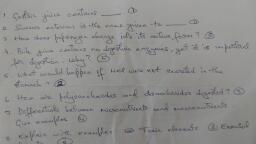 1. Gastric juice contains ____ (1)
2. Succus entericus is the name given to ____ (1)
3. How does pepsinogen change into its active form? (2)
4. Bile juice contains no digestive enzymes, yet it is important for digestion. Why? (2)
5. What would happen if HCl were not secreted in the stomach? (2)
6. How are polysaccharides and disaccharides digested? (3)
7. Differentiate between micronutrients and macronutrients. Give examples
8. Explain with examples Trace elements Essential